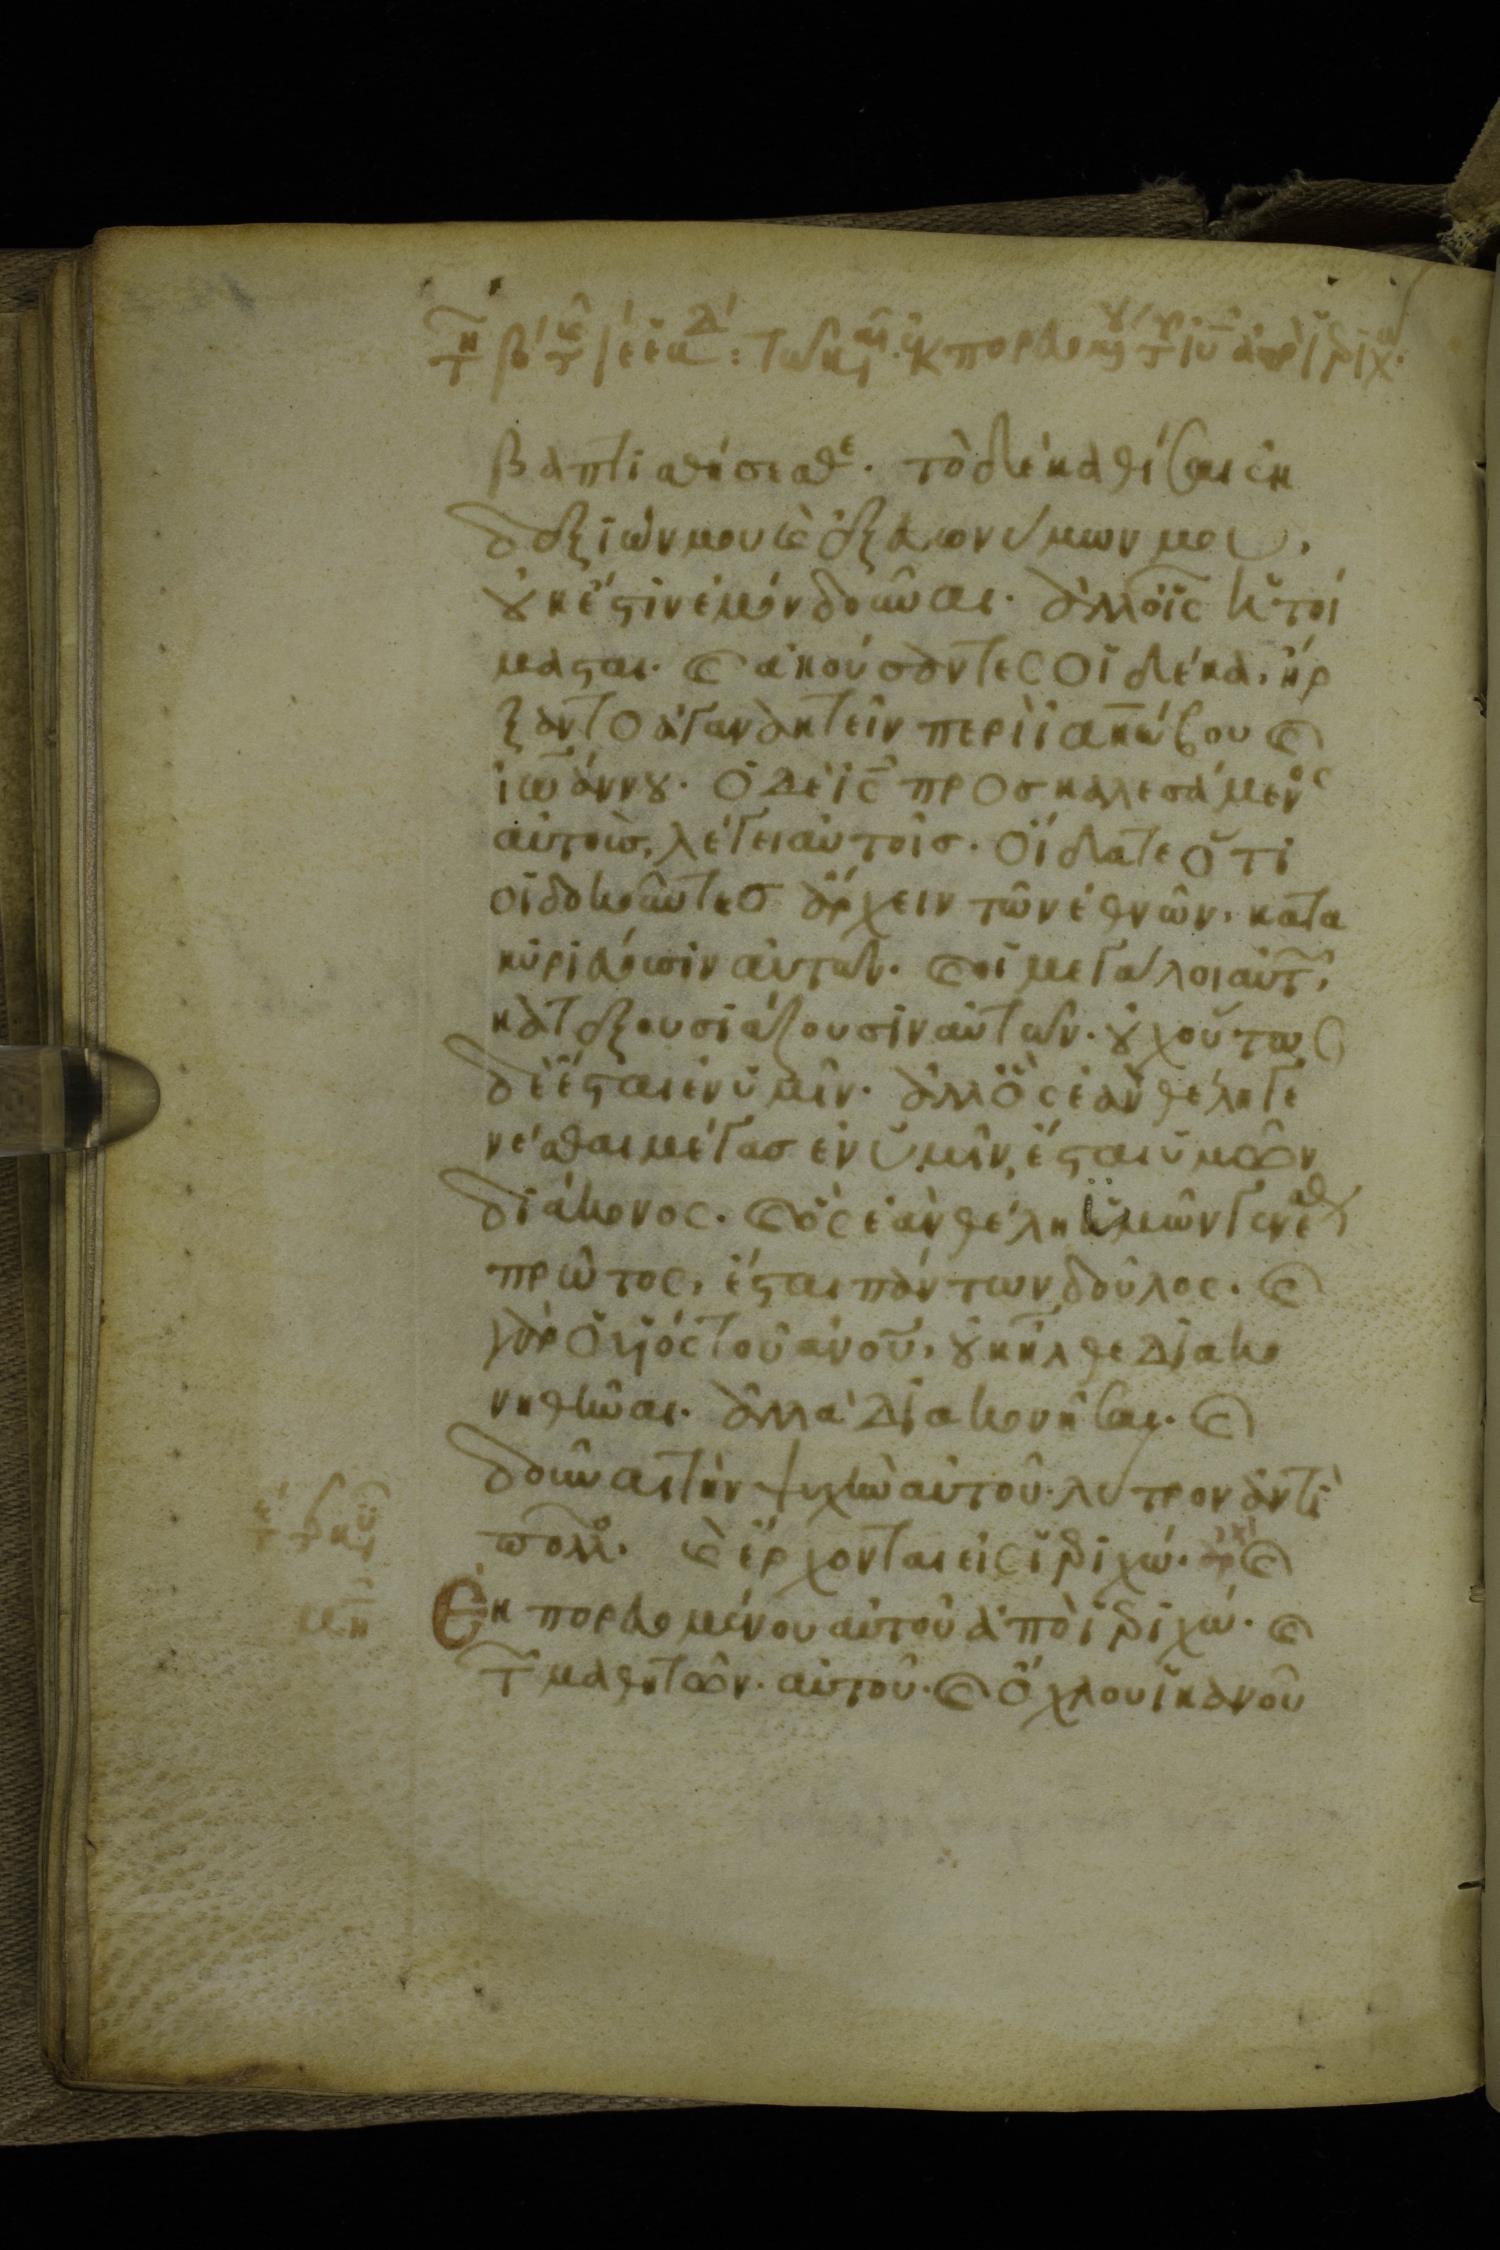 βαπτισθήσεσθε. τὸ δὲ καθίσαι ἐκ
δεξιῶν μου καὶ ἐξ εὐωνύμων μου,
οὐκ ἔστιν ἐμὸν δοῦναι. ἀλλ οἷς ἡτοί
μασται. καὶ ἀκούσαντες οἱ δέκα, ἤρ
ξαντο ἀγανακτεῖν περὶ ἰακώβου καὶ
ἰωάννου. ὁ δὲ ις προσκαλεσάμενος
αὐτοὺς, λέγει αὐτοῖς. οἴδατε ὅτι
οἱ δοκοῦντες ἄρχειν τῶν ἐθνῶν, κατα
κυριεύουσιν αὐτῶν. καὶ οἱ μεγάλοι αὐτῶν,
κατεξουσιάζουσιν αὐτῶν. οὐχ οὕτως
δὲ ἔσται ἐν ὑμῖν. ἀλλ ὃς ἐὰν θέλη γε
νέσθαι μέγας ἐν ὑμῖν, ἔσται ὑμῶν
διάκονος. καὶ ὃς ἐὰν θέλη ὑμῶν γενέσθαι
πρῶτος, ἔσται πάντων δοῦλος. καὶ
γὰρ ὁ υἱὸς τοῦ ανου, οὐκ ἦλθε διακο
νηθῆναι. ἀλλὰ διακονῆσαι. καὶ
δοῦναι τὴν ψυχὴν αὐτοῦ λύτρον ἀντὶ
πολλῶν. καὶ ἔρχονται εἰς ἰεριχώ. καὶ
ἐκπορευομένου αὐτοῦ ἀπὸ ἰεριχώ. καὶ
τῶν μαθητῶν αὐτοῦ. καὶ ὄχλου ἱκανοῦ